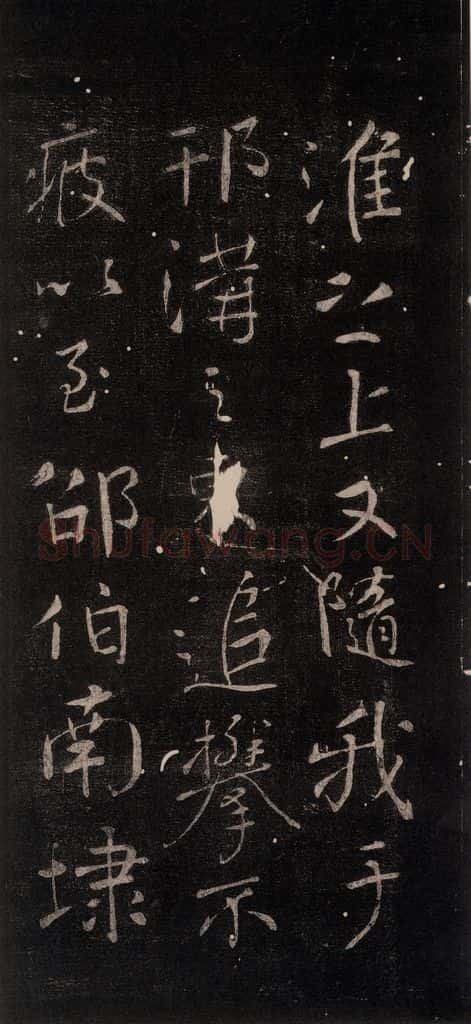 淮之上又隨我于
邗溝之東追攀不
疲以至邵伯南埭
Shufawang.CN